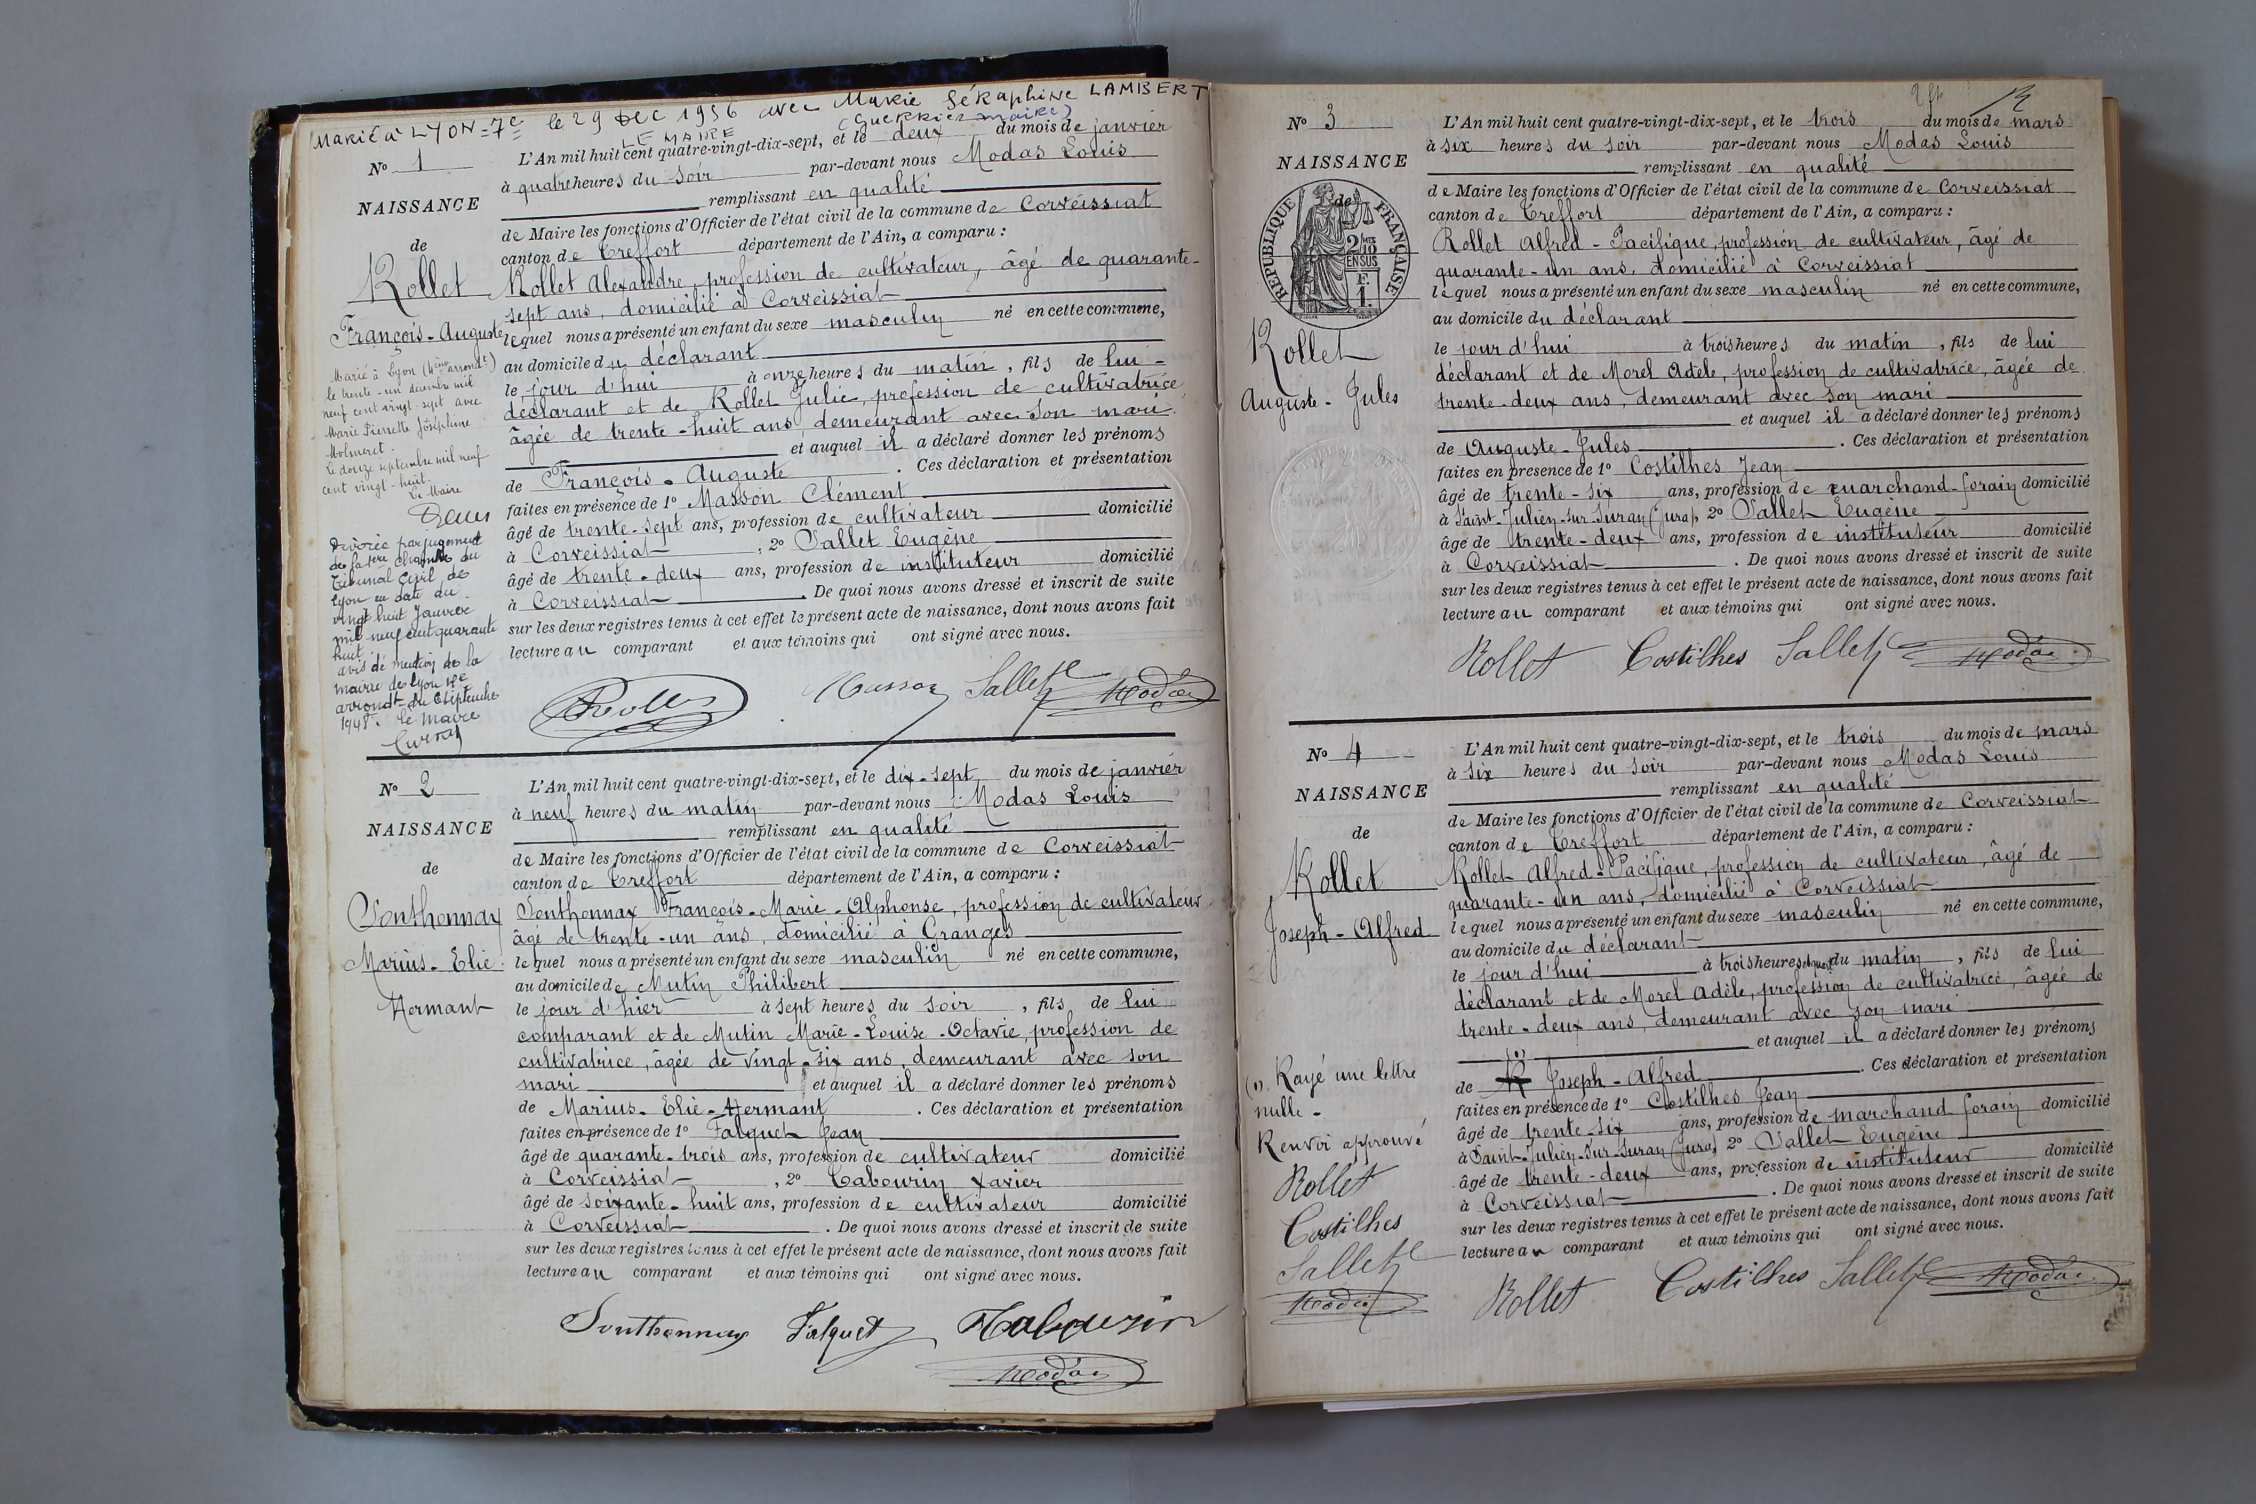 MARIÉ à LYON=7e le 29 DEC 1956 avec Marie SéRaphine LAMBERT
LE MAIRE (Guerrier maire)
No 1
NAISSANCE
de
Rollet
François-Auguste
Marié à Lyon (4ème arrondt)
le trente-un décembre mil
neuf cent vingt-sept avec
Marie Pierrette Joséphine
Molmeret.
Le douze septembre mil neuf
cent vingt-huit.
Le Maire
Divorcé par jugement
de la 1ère chambre du
Tribunal Civil de
Lyon en date du
vingt huit Janvier
mil neuf cent quarante
huit.
avis de mention de la
mairie de Lyon 4e
arrondt du septembre
1948. le Maire
L'An mil huit cent quatre-vingt-dix-sept, et le deux du mois de janvier
à quatre heures du soir par-devant nous Modas Louis
remplissant en qualité
de Maire les fonctions d'Officier de l'état civil de la commune de Corveissiat
canton de Treffort département de l'Ain, a comparu :
Rollet Alexandre, profession de cultivateur, âgé de quarante-
sept ans, domicilié à Corveissiat
lequel nous a présenté un enfant du sexe masculin né en cette commune,
au domicile du déclarant
le jour d'hui à onze heures du matin, fils de lui-
déclarant et de Rollet Julie, profession de cultivatrice
âgée de trente-huit ans demeurant avec son mari
et auquel il a déclaré donner les prénoms
de François-Auguste. Ces déclaration et présentation
faites en présence de 1o Masson Clément
âgé de trente-sept ans, profession de cultivateur domicilié
à Corveissiat, 2o Sallet Eugène
âgé de trente-deux ans, profession de instituteur domicilié
à Corveissiat. De quoi nous avons dressé et inscrit de suite
sur les deux registres tenus à cet effet le présent acte de naissance, dont nous avons fait
lecture au comparant et aux témoins qui ont signé avec nous.
Rollet Masson Sallet Modas
No 2
NAISSANCE
de
Ponthonnax
Marius-Elie
Hermant
L'An mil huit cent quatre-vingt-dix-sept, et le dix-sept du mois de janvier
à neuf heures du matin par-devant nous Modas Louis
remplissant en qualité
de Maire les fonctions d'Officier de l'état civil de la commune de Corveissiat
canton de Treffort département de l'Ain, a comparu :
Ponthonnax François-Marie-Alphonse, profession de cultivateur
âgé de trente-un ans, domicilié à Granges
lequel nous a présenté un enfant du sexe masculin né en cette commune,
au domicile de Mutin Philibert
le jour d'hier à sept heures du soir, fils de lui
comparant et de Mutin Marie-Louise-Octavie, profession de
cultivatrice, âgée de vingt-six ans, demeurant avec son
mari et auquel il a déclaré donner les prénoms
de Marius-Elie-Hermant. Ces déclaration et présentation
faites en présence de 1o Falquet Jean
âgé de quarante-trois ans, profession de cultivateur domicilié
à Corveissiat, 2o Tabourin Xavier
âgé de soixante-huit ans, profession de cultivateur domicilié
à Corveissiat. De quoi nous avons dressé et inscrit de suite
sur les deux registres tenus à cet effet le présent acte de naissance, dont nous avons fait
lecture au comparant et aux témoins qui ont signé avec nous.
Ponthonnax Falquet Tabourin
Modas
No 3
NAISSANCE
de
REPUBLIQUE FRANÇAISE
2/10
EN SUS
F.
1.
Rollet
Auguste-Jules
L'An mil huit cent quatre-vingt-dix-sept, et le trois du mois de mars
à six heures du soir par-devant nous Modas Louis
remplissant en qualité
de Maire les fonctions d'Officier de l'état civil de la commune de Corveissiat
canton de Treffort département de l'Ain, a comparu :
Rollet Alfred-Pacifique, profession de cultivateur, âgé de
quarante-un ans, domicilié à Corveissiat
lequel nous a présenté un enfant du sexe masculin né en cette commune,
au domicile du déclarant
le jour d'hui à trois heures du matin, fils de lui
déclarant et de Morel Adèle, profession de cultivatrice, âgée de
trente-deux ans, demeurant avec son mari
et auquel il a déclaré donner les prénoms
de Auguste-Jules. Ces déclaration et présentation
faites en présence de 1o Costilhes Jean
âgé de trente-six ans, profession de marchand-forain domicilié
à Saint-Julien-sur-Suran (Jura), 2o Sallet Eugène
âgé de trente-deux ans, profession de instituteur domicilié
à Corveissiat. De quoi nous avons dressé et inscrit de suite
sur les deux registres tenus à cet effet le présent acte de naissance, dont nous avons fait
lecture au comparant et aux témoins qui ont signé avec nous.
Rollet Costilhes Sallet Modas
No 4
NAISSANCE
de
Rollet
Joseph-Alfred
(1). Rayé une lettre
nulle-
Renvoi approuvé
Rollet
Costilhes
Sallet
Modas
L'An mil huit cent quatre-vingt-dix-sept, et le trois du mois de mars
à six heures du soir par-devant nous Modas Louis
remplissant en qualité
de Maire les fonctions d'Officier de l'état civil de la commune de Corveissiat
canton de Treffort département de l'Ain, a comparu :
Rollet Alfred-Pacifique, profession de cultivateur, âgé de
quarante-un ans, domicilié à Corveissiat
lequel nous a présenté un enfant du sexe masculin né en cette commune,
au domicile du déclarant
le jour d'hui à trois heures du matin, fils de lui
déclarant et de Morel Adèle, profession de cultivatrice, âgée de
trente-deux ans, demeurant avec son mari
(1) et auquel il a déclaré donner les prénoms
de Joseph-Alfred. Ces déclaration et présentation
faites en présence de 1o Costilhes Jean
âgé de trente-six ans, profession de marchand forain domicilié
à Saint-Julien-sur-Suran (Jura) 2o Sallet Eugène
âgé de trente-deux ans, profession de instituteur domicilié
à Corveissiat. De quoi nous avons dressé et inscrit de suite
sur les deux registres tenus à cet effet le présent acte de naissance, dont nous avons fait
lecture au comparant et aux témoins qui ont signé avec nous.
Rollet Costilhes Sallet Modas